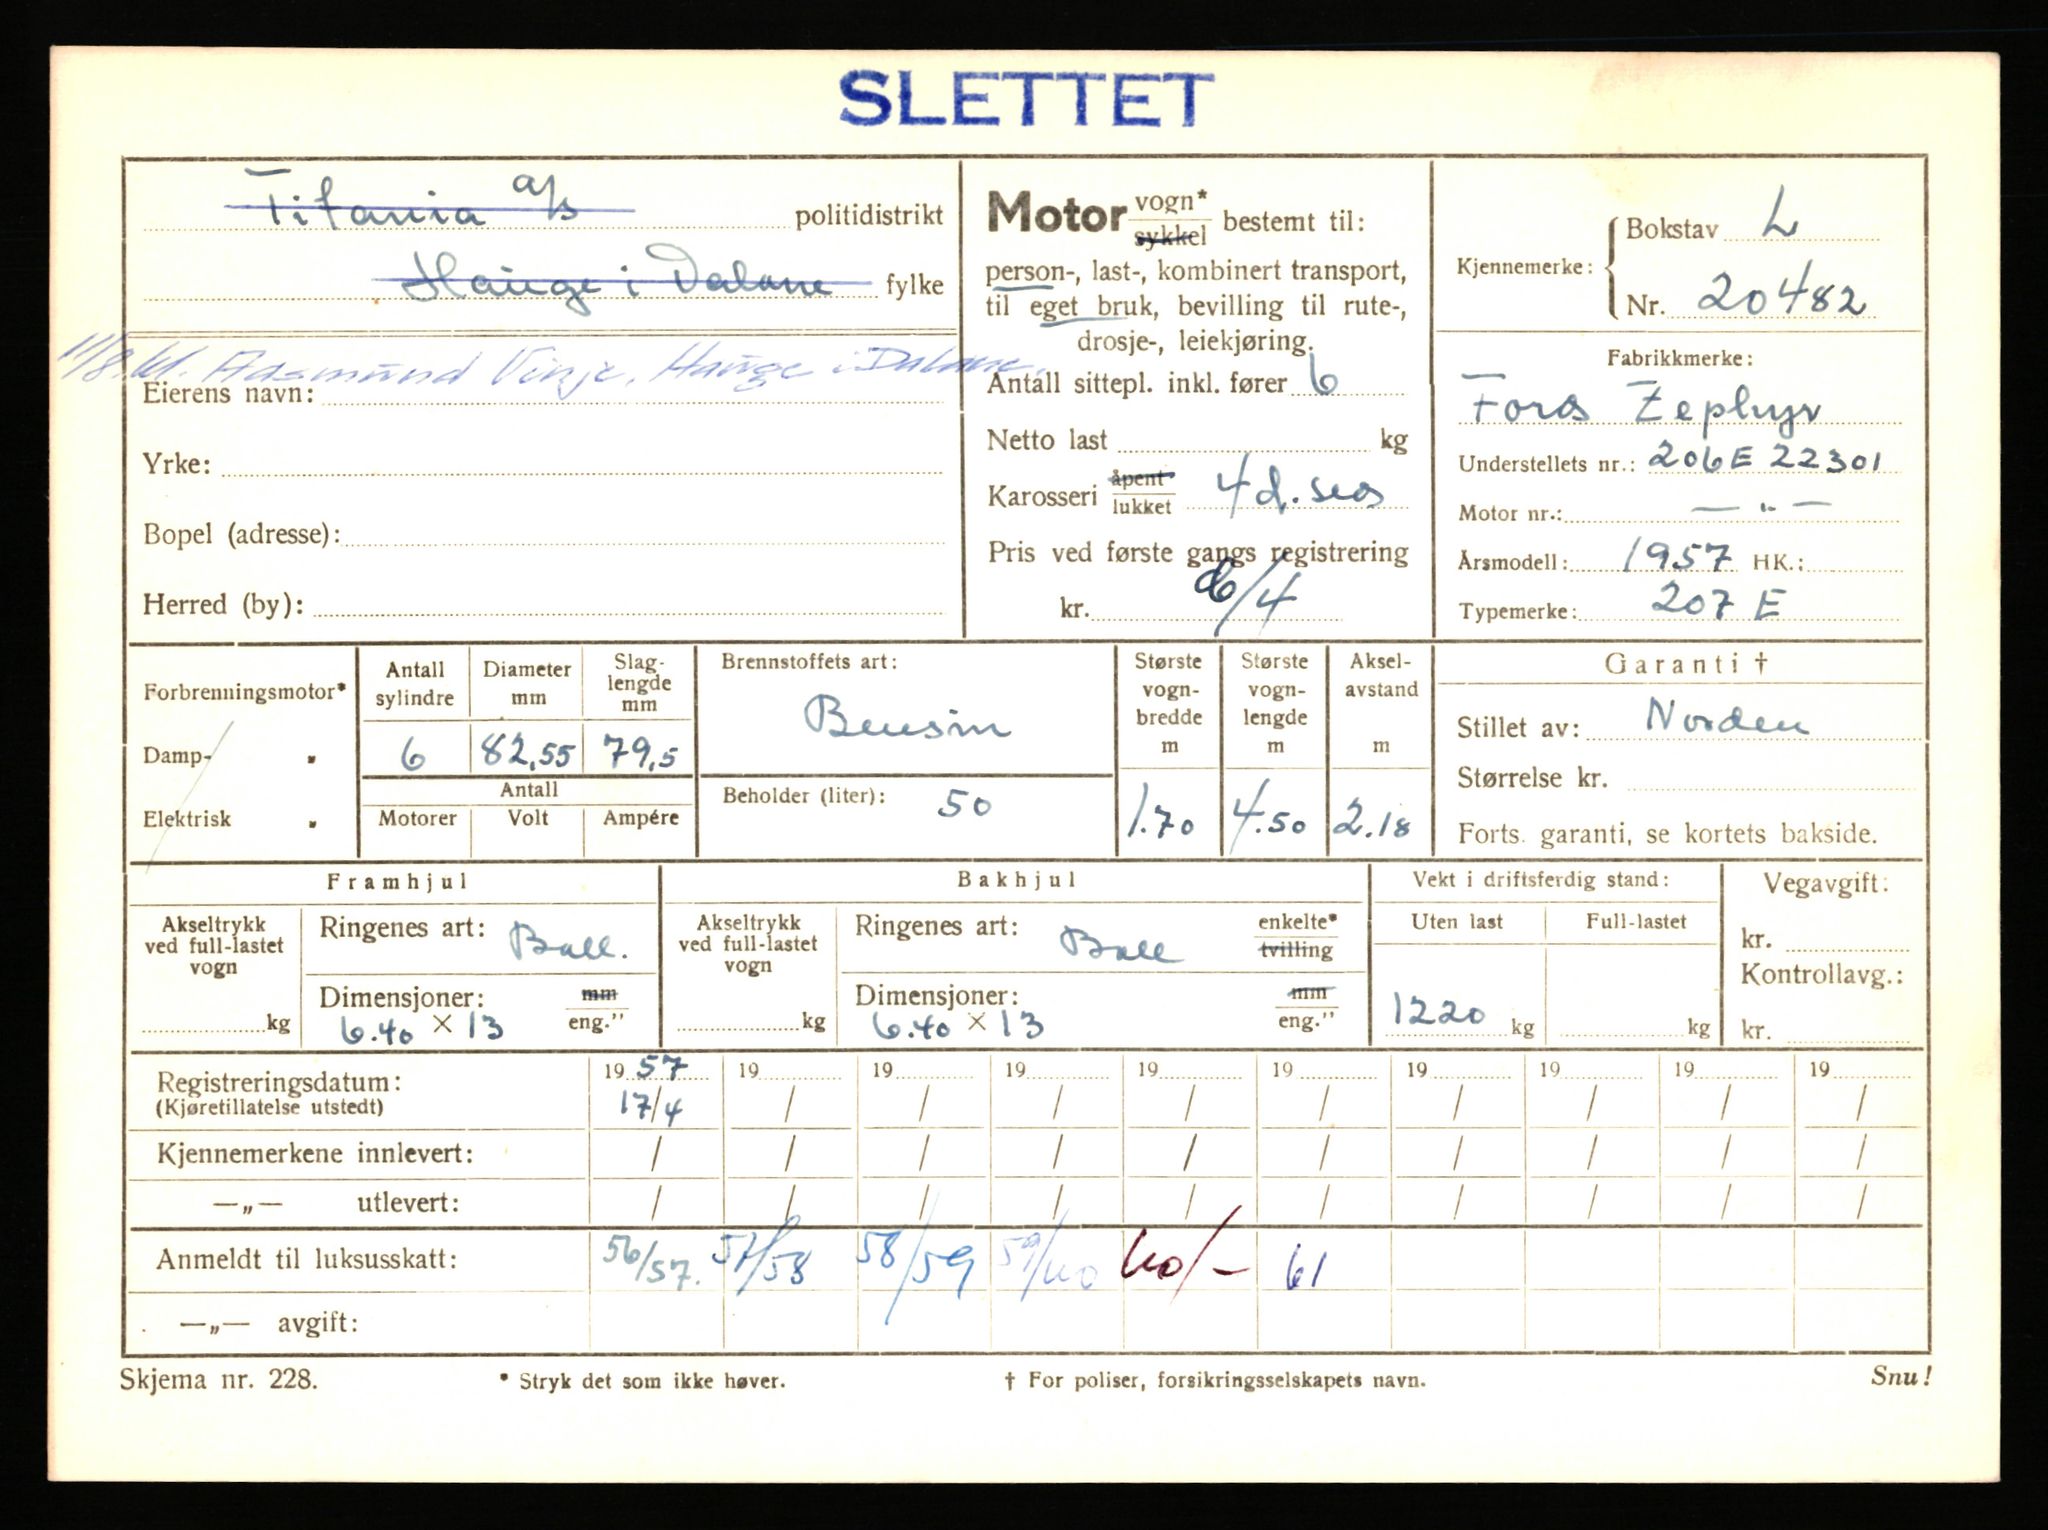 SLETTET
Titania a/s politidistrikt
Hauge i Dalane fylke
11/8.61. Aasmund Vinje, Hauge i Dalane.
Eierens navn:
Yrke:
Bopel (adresse):
Herred (by):
Motor vogn* sykkel bestemt til:
person-, last-, kombinert transport,
til eget bruk, bevilling til rute-,
drosje-, leiekjøring.
Antall sittepl. inkl. fører 6
Netto last kg
Karosseri åpent lukket 4 d. sed
Pris ved første gangs registrering
kr. /4
Kjennemerke: Bokstav L
Nr. 20482
Fabrikkmerke:
Ford Zephyr
Understellets nr.: 206E 22301
Motor nr.: — „ —
Årsmodell: 1957 HK.:
Typemerke: 207 E
Forbrenningsmotor*
Damp- „
Elektrisk „
Antall sylindre 6
Diameter mm 82,55
Slag-lengde mm 79,5
Antall
Motorer Volt Ampére
Brennstoffets art:
Bensin
Beholder (liter): 50
Største vogn-bredde m 1.70
Største vogn-lengde m 4.50
Aksel-avstand m 2.18
Garanti †
Stillet av: Norden
Størrelse kr.
Forts. garanti, se kortets bakside.
Framhjul
Akseltrykk ved full-lastet vogn kg
Ringenes art: Ball.
Dimensjoner: mm eng."
6.40 × 13
Bakhjul
Akseltrykk ved full-lastet vogn kg
Ringenes art: Ball enkelte* tvilling
Dimensjoner: mm eng."
6.40 × 13
Vekt i driftsferdig stand:
Uten last Full-lastet
1220 kg kg
Vegavgift:
kr.
Kontrollavg.:
kr.
Registreringsdatum: 19 57 19 19 19 19 19 19 19 19 19
(Kjøretillatelse utstedt) 17/4 / / / / / / / / /
Kjennemerkene innlevert: / / / / / / / / / /
—„— utlevert: / / / / / / / / / /
Anmeldt til luksusskatt: 56/57. 57/58 58/59 59/60 60/- 61
—„— avgift:
Skjema nr. 228. * Stryk det som ikke høver. † For poliser, forsikringsselskapets navn. Snu!